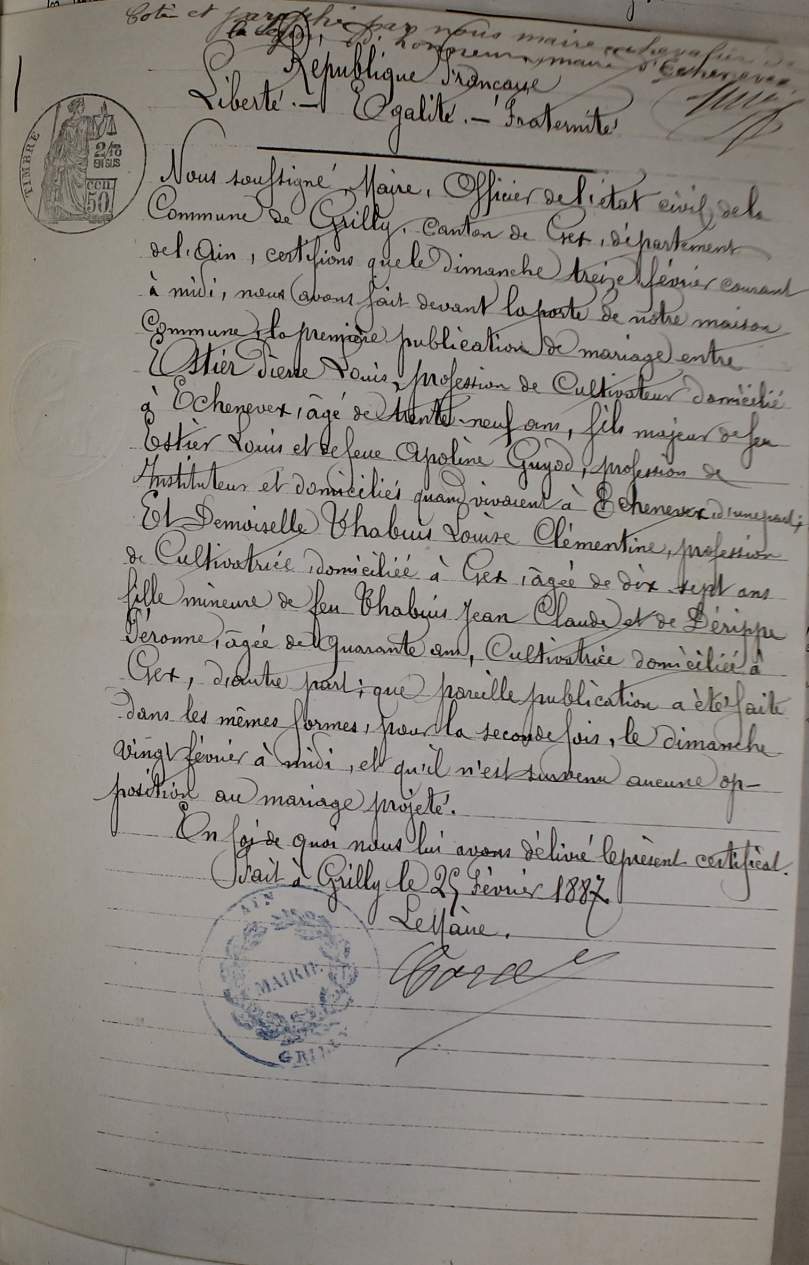 Coté et paraphé par nous maire chevalier de
la Légion d'honneur, maire d'Echenevex
République Française
Liberté. — Egalité. — Fraternité
TIMBRE
2/10
EN SUS
50 CEN
Nous soussigné, Maire, Officier de l'état civil, de la
Commune de Grilly, canton de Gex, département
de l'Ain, certifions que le Dimanche treize février courant
à midi, nous avons fait devant la porte de notre maison
Commune, la première publication de mariage entre
Estier Pierre Louis, profession de Cultivateur domicilié
à Echenevex, âgé de trente-neuf ans, fils majeur de feu
Estier Louis et de feue Apoline Guyod, profession de
Instituteur et domiciliés quand vivaient à Echenevex, d'une part;
Et Demoiselle Thabuis Louise Clémentine, profession
de Cultivatrice, domiciliée à Gex, âgée de dix-sept ans
fille mineure de feu Thabuis Jean Claude et de Dérippe
Péronne, âgée de quarante ans, Cultivatrice domiciliée à
Gex, d'autre part; que pareille publication a été faite
dans les mêmes formes, pour la seconde fois, le dimanche
vingt février à midi, et qu'il n'est survenu aucune op-
position au mariage projeté.
En foi de quoi nous lui avons délivré le présent certificat.
Fait à Grilly le 25 Février 1887
Le Maire.
AIN
MAIRIE
GRILLY